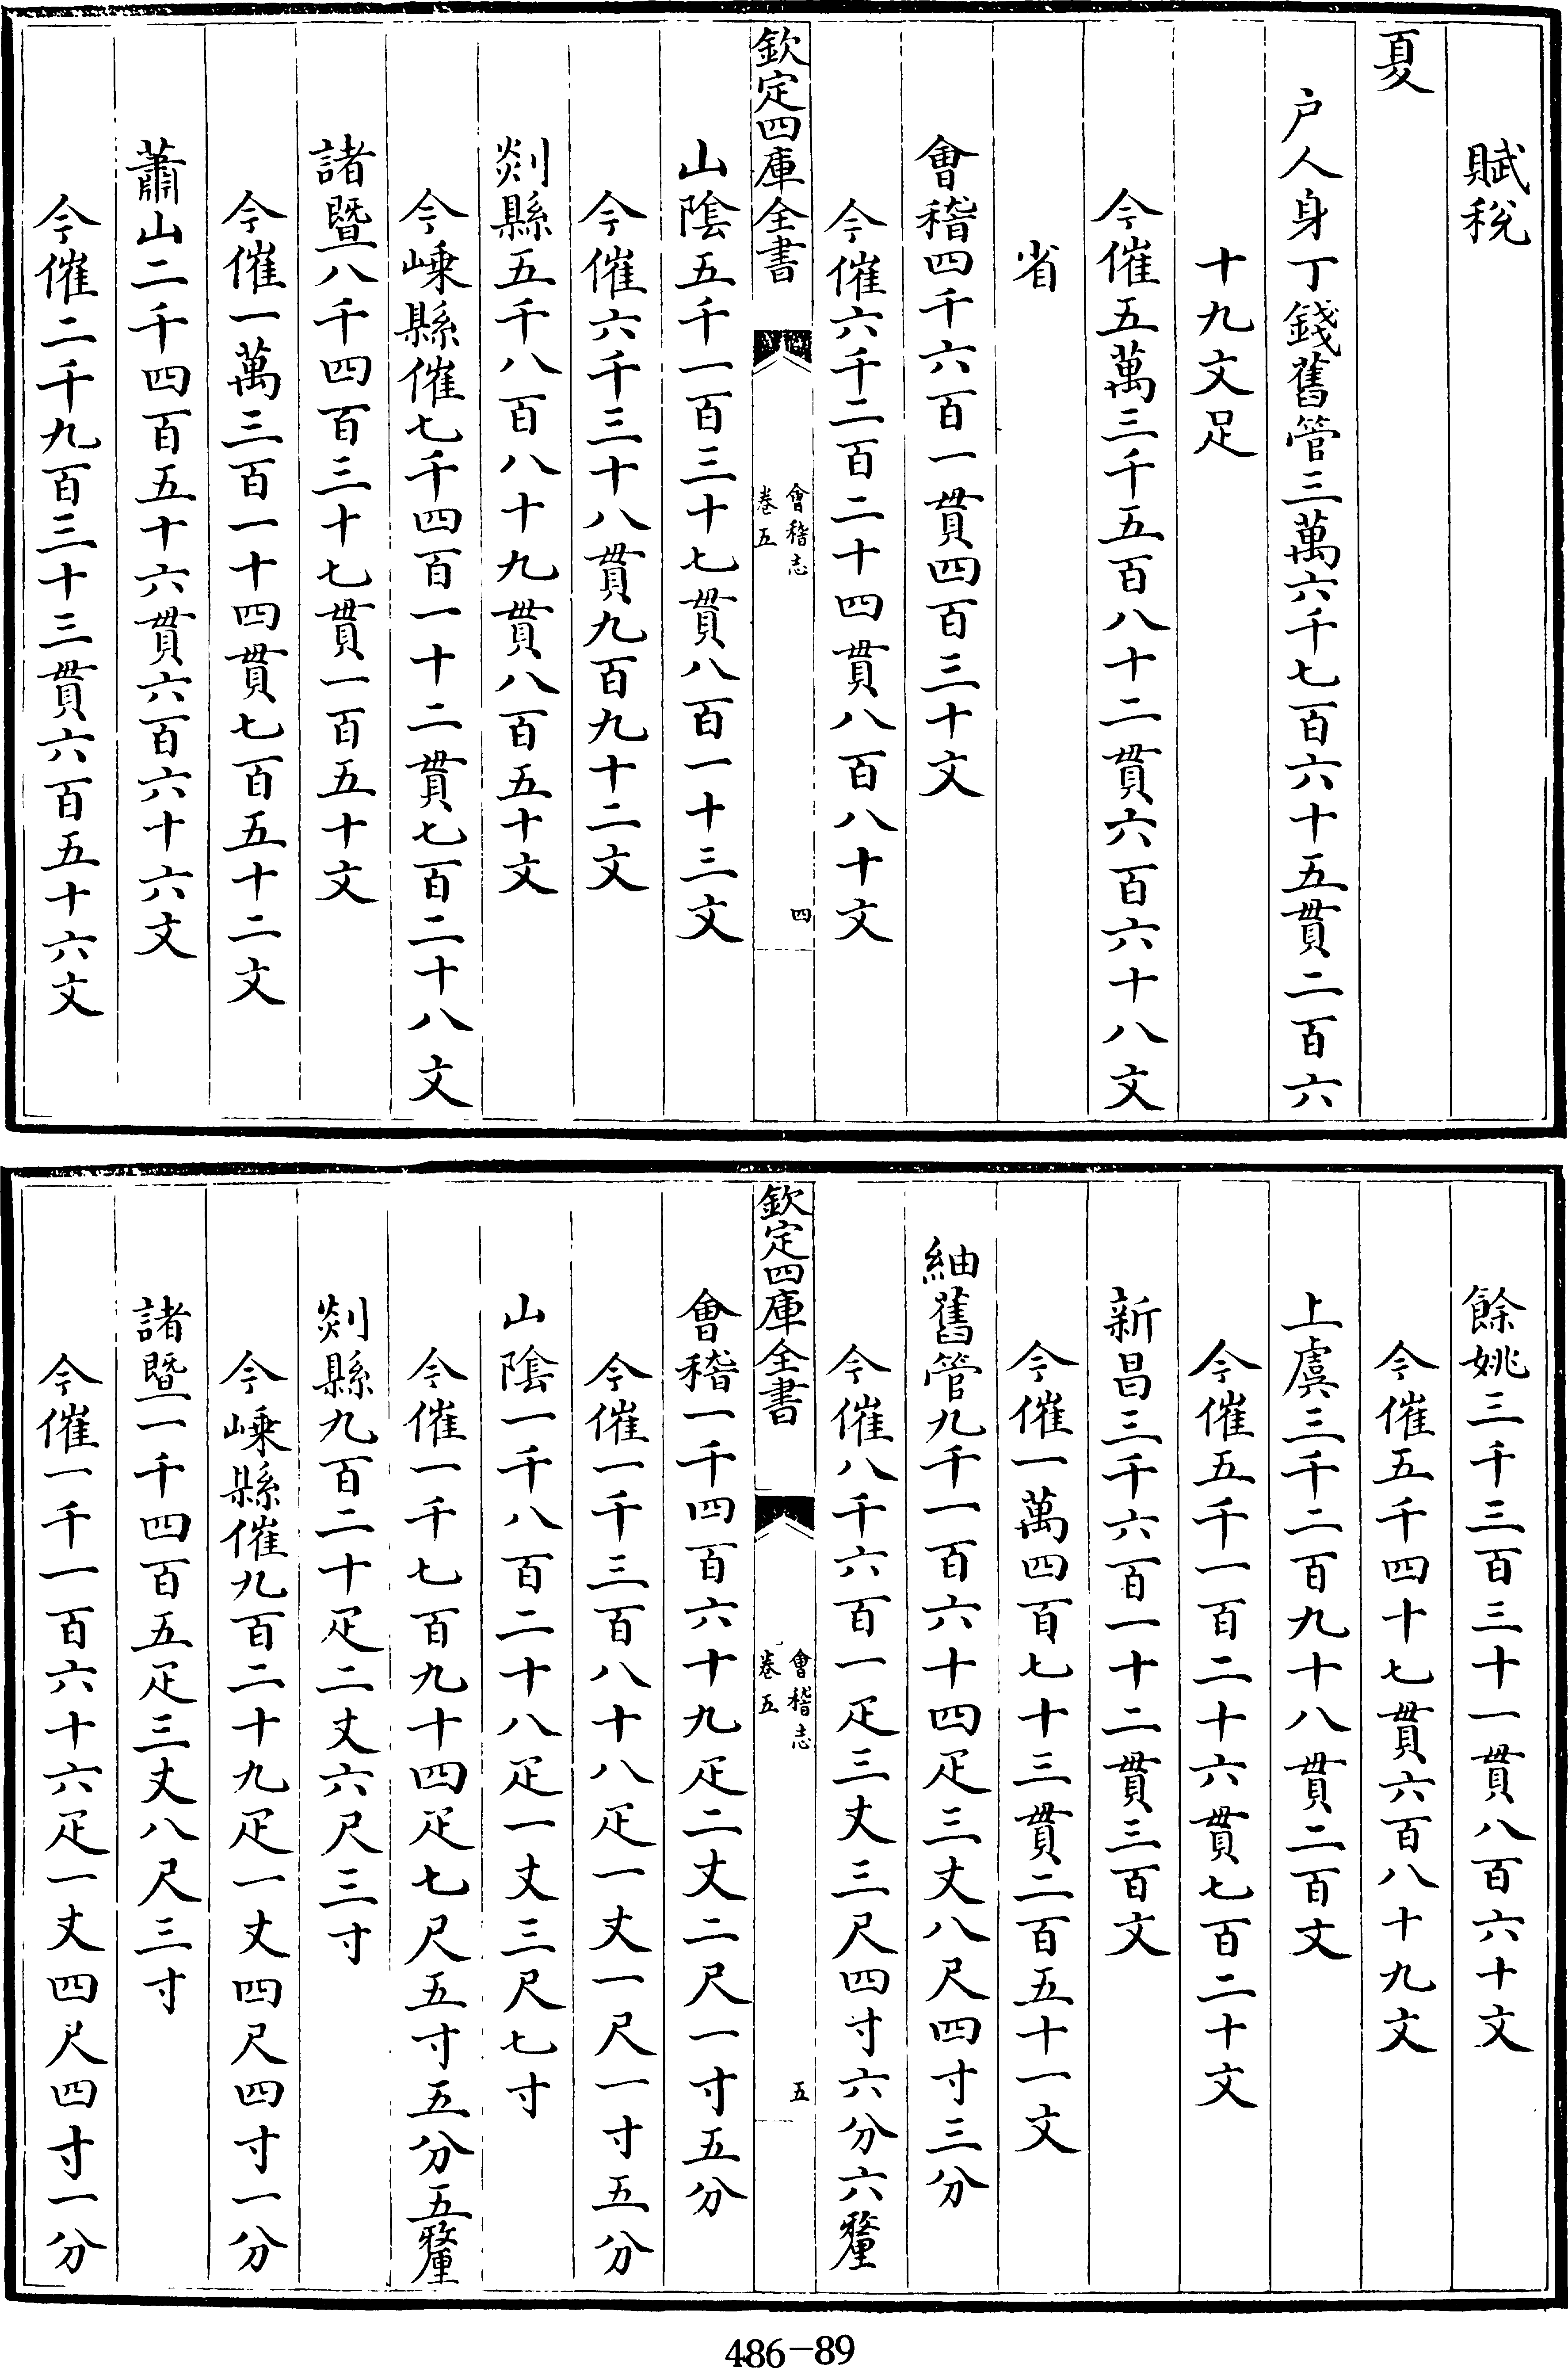 賦稅
夏
户人身丁錢舊管三萬六千七百六十五貫二百六
十九文足
今催五萬三千五百八十二貫六百六十八文
省
會稽四千六百一貫四百三十文
今催六千二百二十四貫八百八十文
欽定四庫全書
會稽志
卷五
四
山隂五千一百三十七貫八百一十三文
今催六千三十八貫九百九十二文
剡縣五千八百八十九貫八百五十文
今嵊縣催七千四百一十二貫七百二十八文
諸暨八千四百三十七貫一百五十文
今催一萬三百一十四貫七百五十二文
蕭山二千四百五十六貫六百六十六文
今催二千九百三十三貫六百五十六文
餘姚三千三百三十一貫八百六十文
今催五千四十七貫六百八十九文
上虞三千二百九十八貫二百文
今催五千一百二十六貫七百二十文
新昌三千六百一十二貫三百文
今催一萬四百七十三貫二百五十一文
紬舊管九千一百六十四疋三丈八尺四寸三分
今催八千六百一疋三丈三尺四寸六分六釐
欽定四庫全書
會稽志
卷五
五
會稽一千四百六十九疋二丈二尺一寸五分
今催一千三百八十八疋一丈一尺一寸五分
山隂一千八百二十八疋一丈三尺七寸
今催一千七百九十四疋七尺五寸五分五釐
剡縣九百二十疋二丈六尺三寸
今嵊縣催九百二十九疋一丈四尺四寸一分
諸暨一千四百五疋三丈八尺三寸
今催一千一百六十六疋一丈四尺四寸一分
486-89